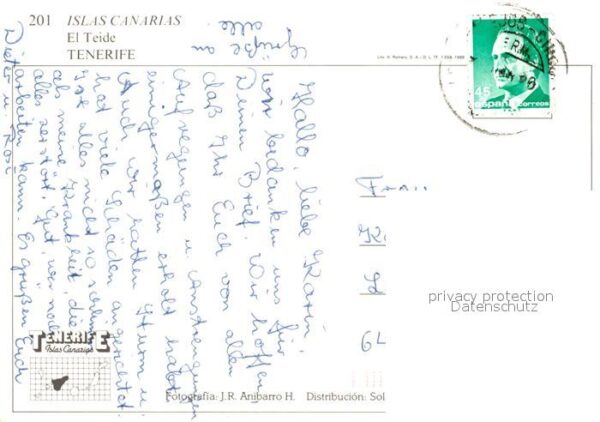 201 ISLAS CANARIAS
El Teide
TENERIFE
Grüße an
alle
Hallo, liebe Karin,
wir bedanken uns für
Deinen Brief. Wir hoffen,
daß Ihr Euch von allen
Aufregungen u. Anstrengungen
einigermaßen erholt habt.
Auch wir hatten Sturm u.
hat viele Schäden angerichtet.
Ist alles nicht so schlimm
als meine Krankheit, die
alles zerstört. Gut, wer noch
arbeiten kann. Es grüßen Euch
Dieter u. Rosi
45
españa correos
Frau
K
L
64
privacy protection
Datenschutz
TENERIFE
Islas Canarias
Fotografía: J.R. Anibarro H. Distribución: Sol